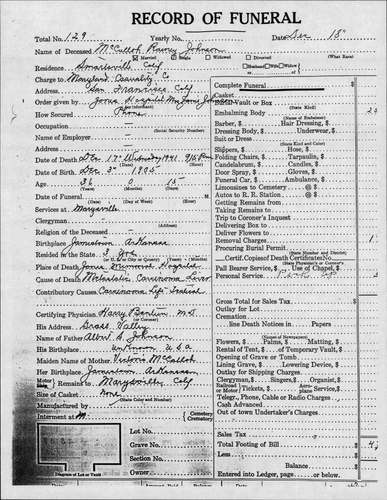 RECORD OF FUNERAL
Total No. 129 Yearly No. Date Dec 18"
Name of Deceased McCulloh Rainey Johnson (What Race)
Married Single Widowed Divorced
Residence Smartsville Calif Husband Wife Widow of
Charge to Maryland Casualty Co
Address San Francisco Calif
Order given by Jones Hospital Mrs Johnson
How Secured Phone
Occupation
(Social Security Number)
Name of Employer -
Address -
Date of Death Dec 17" Wednesday 1941 9:15 P.m.
Date of Birth Dec 3" 1905
Age 36 0 15 -
Date of Funeral M
Services at Marysville
Clergyman
Religion of the Deceased -
Birthplace Arkansas
Resided in the State
Place of Death Jones Memorial Hospital
Cause of Death Metastatic Carcinoma Liver
Contributory Causes Carcinoma Left
Certifying Physician Harry M.D
His Address Grass Valley
Name of Father Albert S. Johnson
His Birthplace unknown U S A
Maiden Name of Mother McCulloh
Her Birthplace Arkansas
Motor Remains to Marysville, Calif
Size of Casket None
(State Color and Number)
Manufactured by
Interment at M. Cemetery
Crematory
Lot No.
Grave No.
Section No.
Owner
Diagram of Lot or Vault
Complete Funeral
Casket
Burial Vault or Box
(State Kind)
Embalming Body
Barber, Hair Dressing,
Dressing Body, Underwear,
Suit or Dress
(State Kind and Color)
Slippers, Hose,
Folding Chairs, Tarpaulin,
Candelabrum, Candles,
Door Spray, Gloves,
Funeral Car, Ambulance,
Limousines to Cemetery @ $
Autos to R. R. Station @ $
Getting Remains from
Taking Remains to
Trip to Coroner's Inquest
Delivering Box to
Deliver Flowers to
Removal Charges
Procuring Burial Permit
(State Number and District)
Certif. Copies of Death Certificates No.
(State Physician's or Coroner's)
Pall Bearer Service, Use of Chapel,
Personal Service
Gross Total for Sales Tax
Outlay for Lot
Cremation
line Death Notices in Papers
(Names of Newspapers)
Flowers, Palms, Matting,
Rental of Tent, of Temporary Vault,
Opening of Grave or Tomb
Lining Grave, Lowering Device,
Outlay for Shipping Charges
Clergyman, Singers, Organist,
Railroad or Motor Tickets, Aero Service,
Teleg., Phone, Cable or Radio Charges
Cash Advanced
Out of town Undertaker's Charges
Sales Tax
Total Footing of Bill
Less
Balance
Entered into Ledger, page or below.